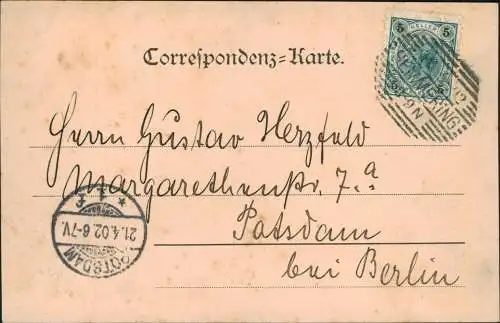 5 HELLER 5
Correspondenz=Karte.
Herrn Gustav Herzfeld
Margarethenstr. 7.a
Potsdam
bei Berlin
* 1 f *
21.4.02. 6-7V.
POTSDAM